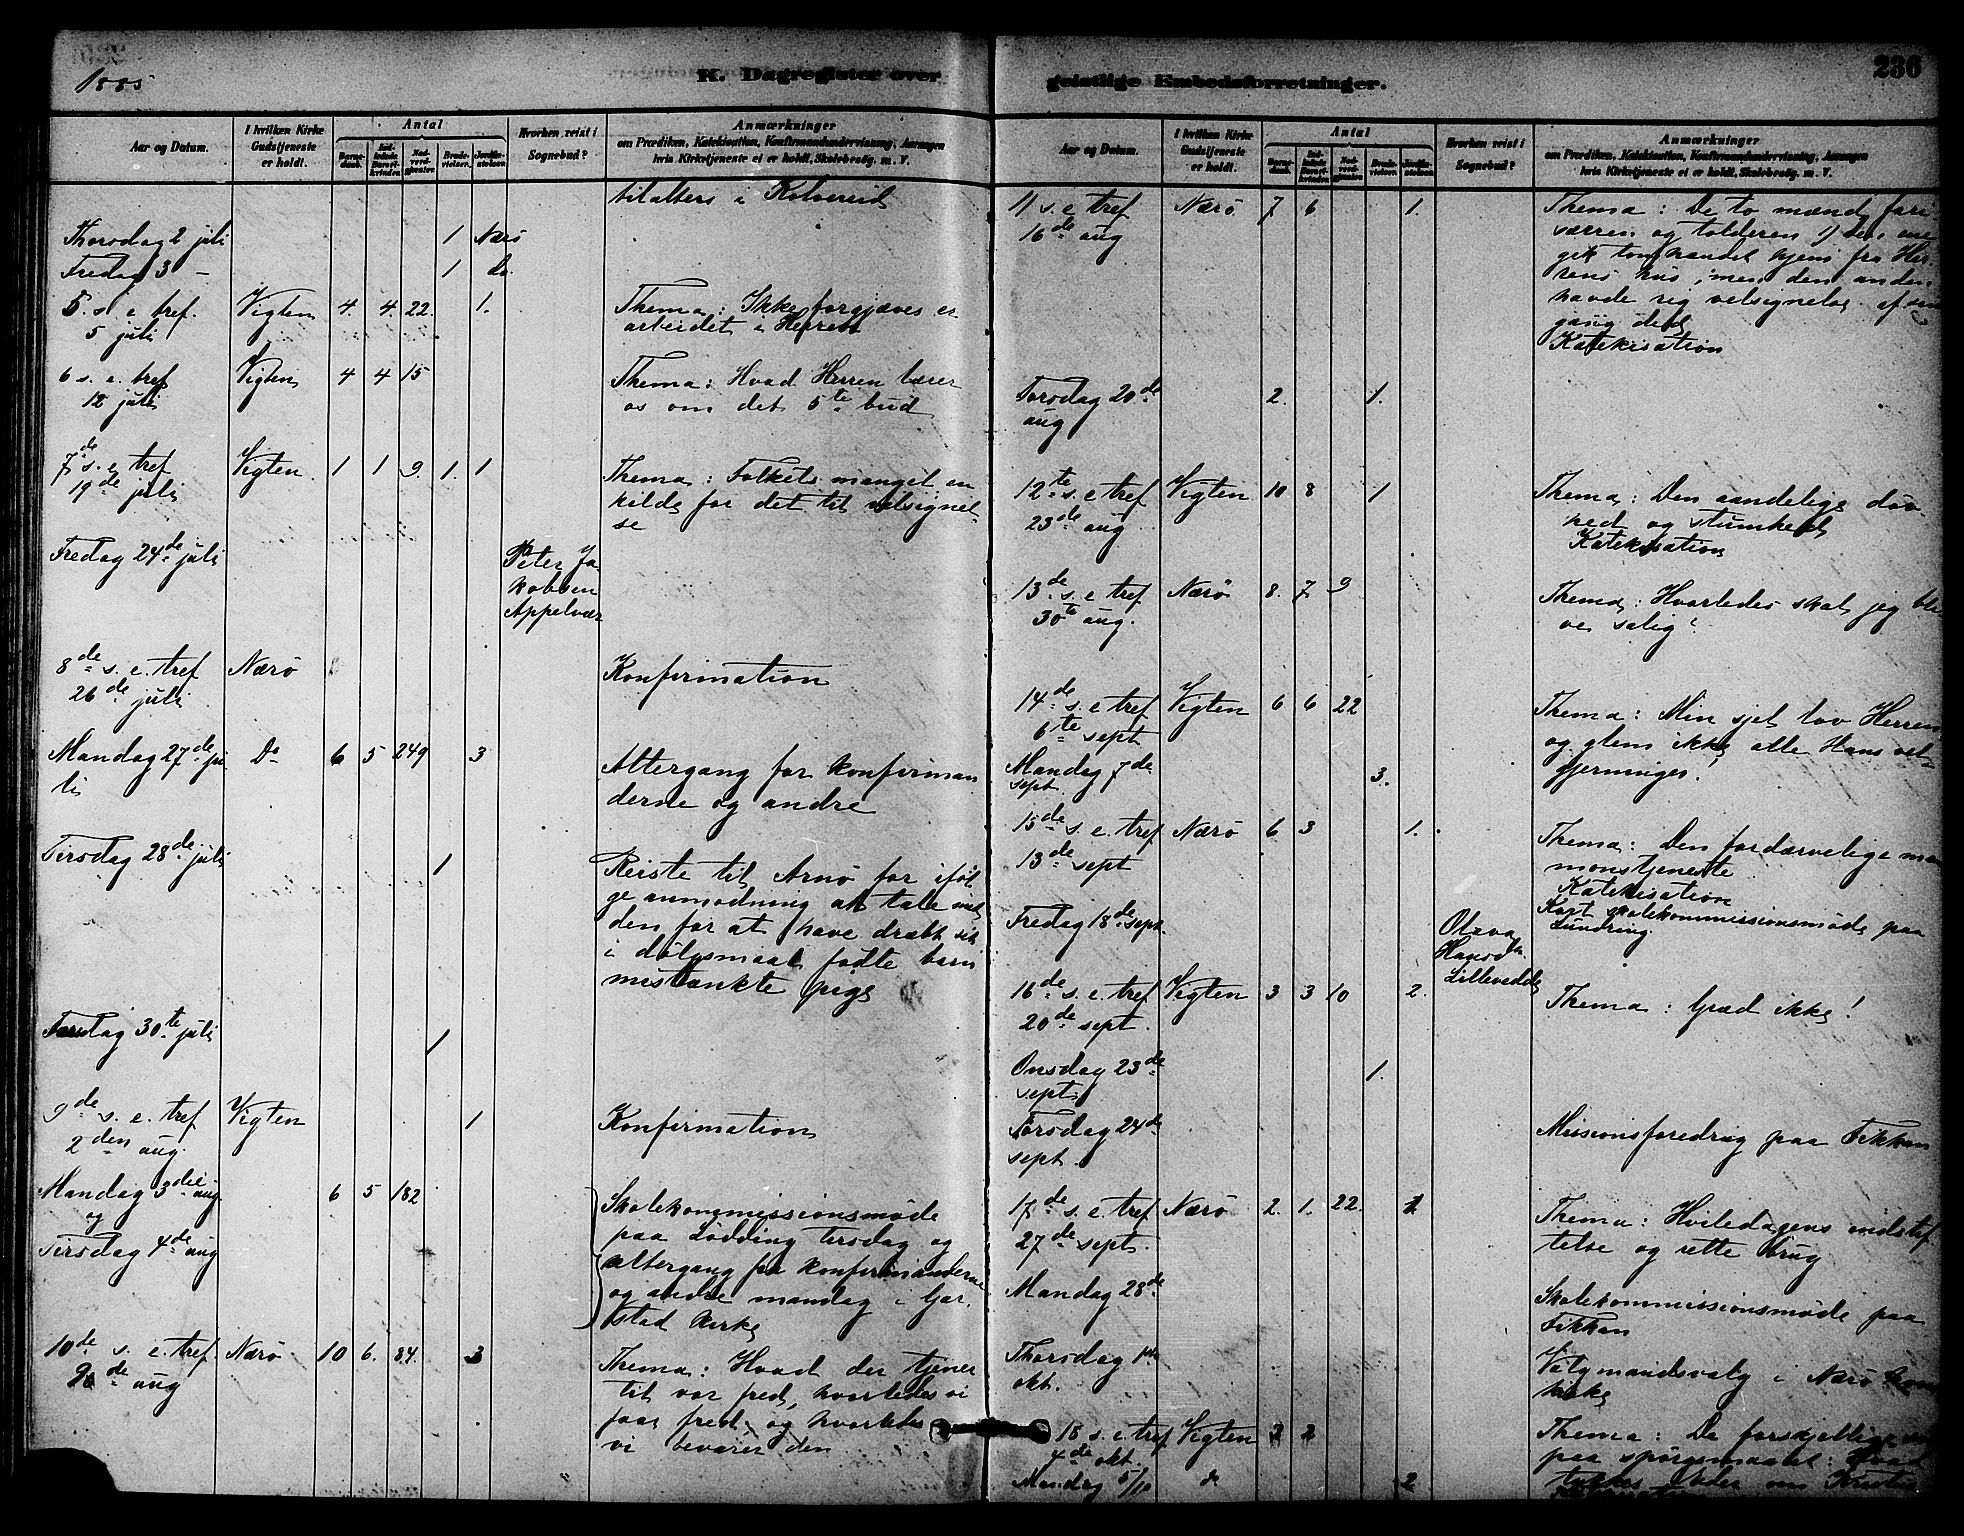 1885
K. Dagregister over
geistlige Embedsforretninger.
236
Aar og Datum.
I hvilken Kirke Gudstjeneste er holdt.
Antal
Hvorhen reist i Sognebud?
Anmærkninger
om Prædiken, Katekisation, Konfirmandundervisning, Aarsagen
hvis Kirketjeneste ei er holdt, Skolebesøg. m. V.
tilalters i Kolvereid
Thorsdag 2 juli 1 Nærø
Fredag 3 – 1 Do.
5. s. e. tref. Vigten 4. 4. 22. 1. Thema: Ikke forgjæves er
5 juli arbeidet i Herren
6 s. e. tref Vigten 4 4 15 Thema: Hvad Herren lærer
12 juli os om det 5te bud
7de s. e. tref Vigten 1 1 9. 1. 1 Thema: Folkets mangel en
19de juli kilde for det til velsignel-
se
Fredag 24de juli Peter Ja
kobsen
Appelvær
8de s. e. tref Nærø Konfirmation
26de juli
Mandag 27de ju Do 6 5 249 3 Altergang for konfirman
li derne og andre
Tirsdag 28de juli 1 Reiste til Arnø for iføl
ge anmodning at tale med
den for at have dræbt sit
i dølgsmaal fødte barn
mistænkte pige
Torsdag 30te juli 1
9de s. e. tref Vigten 1 Konfirmation
2den aug.
Mandag 3die aug 6 5 182 Skolekommissionsmøde
og paa Lødding tirsdag og
Tirsdag 4de aug altergang for konfirmanderne
og andre mandag i Gar
stad kirke
10de s. e. tref. Nærø 10 6. 84. 3 Thema: Hvad der tjener
9de aug til vor fred, hvorledes vi
faar fred, og hvorledes
vi bevarer den
Aar og Datum.
I hvilken Kirke Gudstjeneste er holdt.
Antal
Hvorhen reist i Sognebud?
Anmærkninger
om Prædiken, Katekisation, Konfirmandundervisning, Aarsagen
hvis Kirketjeneste ei er holdt, Skolebesøg. m. V.
11 s. e tref Nærø 7. 6 1. Thema: De to mænd, fari
16de aug sæeren og tolderen 1) den ene
gik tomhændet hjem fra Her
rens hus, men den anden
havde sig velsignelse af sin
gang did
Katekisation
Torsdag 20de 2. 1.
aug
12te s. e tref Vigten 10 8 1 Thema: Den aandelige døv
23de aug hed og stumhed
Katekisation
13de s. e tref Nærø 8. 7. 9 Thema: Hvorledes skal jeg bli
30te aug. ve salig?
14de s. e tref Vigten 6 6 22 Thema: Min sjel lov Herren
6te sept og glem ikke alle Hans vel-
Mandag 7de 3. gjerninger!
sept.
15de s. e. tref Nærø 6 3 1. Thema: Den fordærvelige mam
13de sept monstjeneste
Katekisation
Fredag 18de sept. Olava Kort skolekommissionsmøde paa
Hansdtr. Lundring
Lillevedde
16de s. e. tref Vigten 3 3 10 2. Thema: Græd ikke!
20de sept.
Onsdag 23de 1.
sept
Torsdag 24de Missionsforedrag paa Fikkan
sept.
17de s. e. tref Nærø 2. 1. 22. 1 Thema: Hviledagens indstif
27de sept. telse og rette brug
Mandag 28de Skolekommissionsmøde paa
Fikkan
Thorsdag 1ste Valgmandsvalg i Nærø
okt. kirke
18 s. e. tref Vigten 2 2 Thema: De forskjellige
4de okt. paa spørgsmaalet: Hvad
Mandag 5/10 do 2 tykkes Eder om Kristus